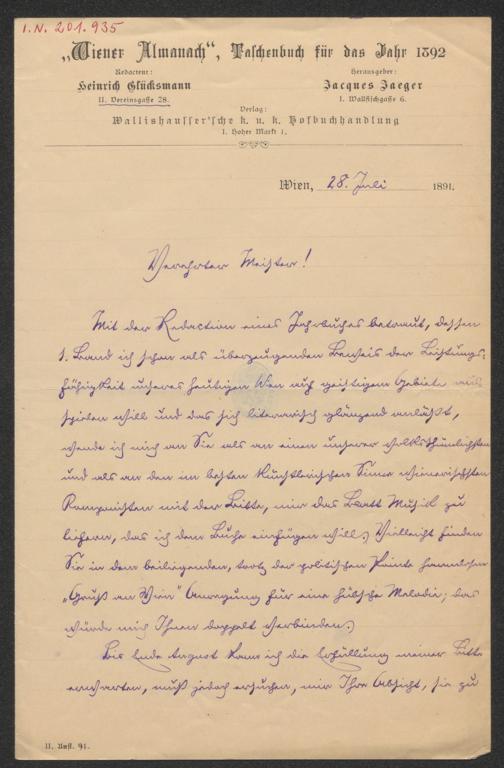 I.N. 201.935
„Wiener Almanach“, Taschenbuch für das Jahr 1892
Redacteur:
Heinrich Glücksmann
II. Vereinsgasse 28.
Herausgeber:
Jacques Jaeger
I. Wallfischgasse 6.
Verlag:
Wallishausser'sche k. u. k. Hofbuchhandlung
I. Hoher Markt 1.
Wien, 28. Juli 1891.
Verehrter Meister!
Mit der Redaction eines Jahrbuches betraut, dessen
1. Band ich schon als überzeugenden Beweis der Leistungs-
fähigkeit unseres heutigen Wien auf geistigem Gebiete aus-
spielen will und das sich literarisch glänzend anläßt,
wende ich mich an Sie als an einen unserer volksthümlichsten
und als an den im besten künstlerischen Sinne wienerischsten
Komponisten mit der Bitte, mir das Blatt Musik zu
liefern, das ich dem Buche einfügen will. Vielleicht finden
Sie in dem beiliegenden, trotz der politischen Pointe harmlosen
„Gruß an Wien“ Anregung für eine hübsche Melodie; das
würde mich Ihnen doppelt verbinden.
Bis Ende August kann ich die Erfüllung meiner Bitte
erwarten, muß jedoch ersuchen, mir Ihre Absicht, sie zu
II. Aufl. 91.